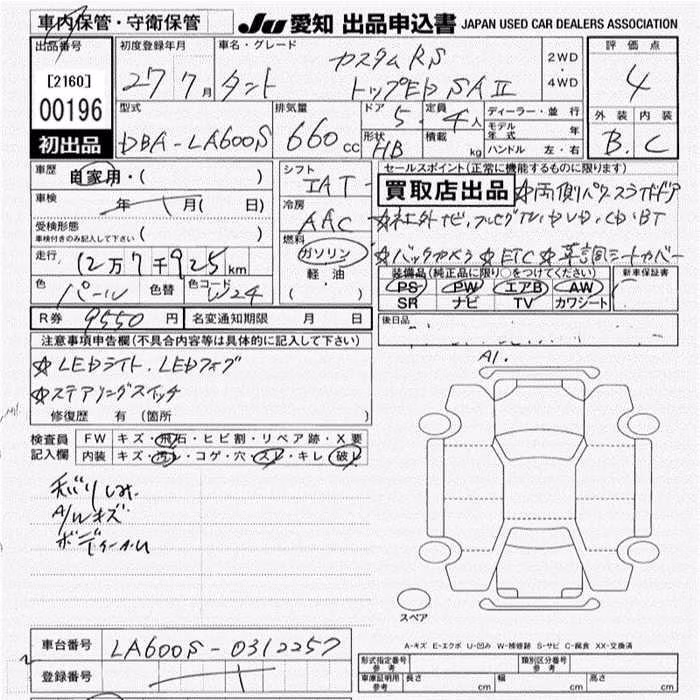 車内保管・守衛保管 JU 愛知 出品申込書 JAPAN USED CAR DEALERS ASSOCIATION
出品番号 初度登録年月 車名・グレード 評価点
[2160] 27 7月 タント カスタムRS 2WD・4WD 4
00196 トップED SAⅡ
型式 排気量 ドア 5 定員 4人 ディーラー・並行 外装 内装
初出品 DBA-LA600S 660cc 形状 HB 積載 kg モデル年式 年 B. C
ハンドル 左・右
車歴 自家用・( ) シフト IAT セールスポイント(正常に機能するものに限ります)
買取店出品 ☆両側パワースライドドア
車検 年 月( 日) 冷房 AAC ☆社外ナビ,フルセグTV,DVD,CD,BT
受検形態 車検付きのみ記入して下さい ( ) 燃料 ☆バックカメラ ☆ETC ☆革調シートカバー
走行 12万7千925km ガソリン 装備品(純正品に限り○をつけてください) 新車保証書
軽油 PS PW エアB AW
色 パール 色替 色コード W24 ( ・ ) SR ナビ TV カワシート
R券 9550円 名変通知期限 月 日 後日品
注意事項申告欄(不具合内容等は具体的に記入して下さい)
☆LEDライト.LEDフォグ A1.
☆ステアリングスイッチ
修復歴 有 (箇所 )
検査員 FW キズ・飛石・ヒビ割・リペア跡・X要
記入欄 内装 キズ・汚レ・コゲ・穴・スレ・キレ・破レ
A/Wキズ
スペア
車台番号 LA600S-0312257
A-キズ E-エクボ U-凹み W-補修跡 S-サビ C-腐食 XX-交換済
形式指定番号 参考 類別区分番号 参考
登録番号 車庫証明用 参考 長さ cm 幅 cm 高さ cm